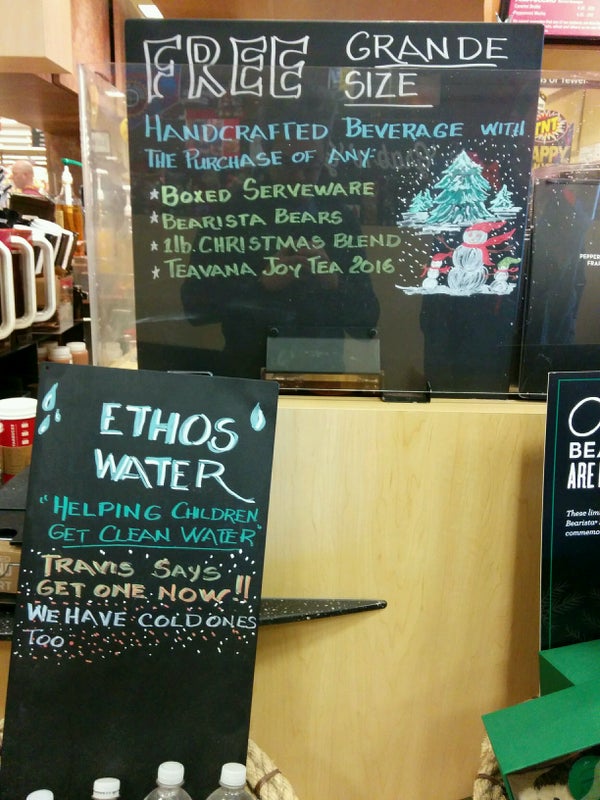 FREE GRANDE SIZE
HANDCRAFTED BEVERAGE WITH
THE PURCHASE OF ANY:
* BOXED SERVEWARE
* BEARISTA BEARS
* 1lb. CHRISTMAS BLEND
* TEAVANA JOY TEA 2016
ETHOS
WATER
"HELPING CHILDREN
GET CLEAN WATER"
TRAVIS SAYS
GET ONE NOW!!
WE HAVE COLD ONES
TOO
BE
ARE
These lim
Bearista
commemo
PEPPER
FRA